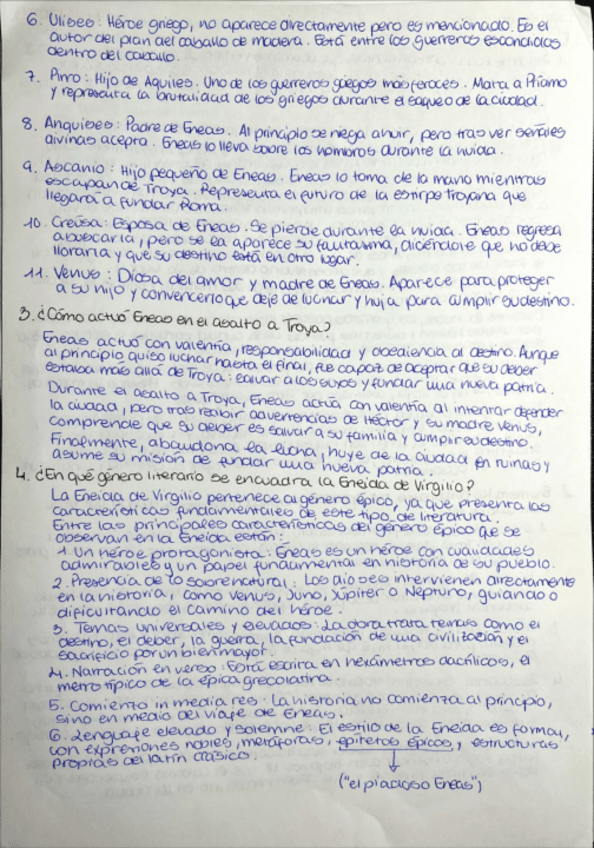 6. Ulises: Héroe griego, no aparece directamente pero es mencionado. Es el
autor del plan del caballo de madera. Está entre los guerreros escondidos
dentro del caballo.
7. Pirro: Hijo de Aquiles. Uno de los guerreros griegos más feroces. Mata a Príamo
y representa la brutalidad de los griegos durante el saqueo de la ciudad.
8. Anquises: Padre de Eneas. Al principio se niega a huir, pero tras ver señales
divinas acepta. Eneas lo lleva sobre los hombros durante la huida.
9. Ascanio: Hijo pequeño de Eneas. Eneas lo toma de la mano mientras
escapan de Troya. Representa el futuro de la estirpe troyana que
llegará a fundar Roma.
10. Creúsa: Esposa de Eneas. Se pierde durante la huida. Eneas regresa
a buscarla, pero se le aparece su fantasma, diciéndole que no debe
llorarla y que su destino está en otro lugar.
11. Venus: Diosa del amor y madre de Eneas. Aparece para proteger
a su hijo y convencerlo que deje de luchar y huja para cumplir su destino.
3. ¿Cómo actuó Eneas en el asalto a Troya?
Eneas actuó con valentía, responsabilidad y obediencia al destino. Aunque
al principio quiso luchar hasta el final, fue capaz de aceptar que su deber
estaba más allá de Troya: salvar a los suyos y fundar una nueva patria.
Durante el asalto a Troya, Eneas actúa con valentía al intentar defender
la ciudad, pero tras recibir advertencias de Héctor y su madre Venus,
comprende que su deber es salvar a su familia y cumplir su destino.
Finalmente, abandona la lucha, huye de la ciudad en ruinas y
asume su misión de fundar una nueva patria.
4. ¿En qué género literario se encuadra la Eneida de Virgilio?
La Eneida de Virgilio pertenece al género épico, ya que presenta las
características fundamentales de este tipo de literatura.
Entre las principales características del género épico que se
observan en la Eneida están:
1. Un héroe protagonista: Eneas es un héroe con cualidades
admirables y un papel fundamental en historia de su pueblo.
2. Presencia de lo sobrenatural: Los dioses intervienen directamente
en la historia, como Venus, Juno, Júpiter o Neptuno, guiando o
dificultando el camino del héroe.
3. Temas universales y elevados: La obra trata temas como el
destino, el deber, la guerra, la fundación de una civilización y el
sacrificio por un bien mayor.
4. Narración en verso: Está escrita en hexámetros dacílicos, el
metro típico de la épica grecolatina.
5. Comienzo in media res: La historia no comienza al principio,
sino en medio del viaje de Eneas.
6. Lenguaje elevado y solemne: El estilo de la Eneida es formal,
con expresiones nobles, metáforas, epítetos épicos, estructuras
propias del latín clásico.
("el piadoso Eneas")